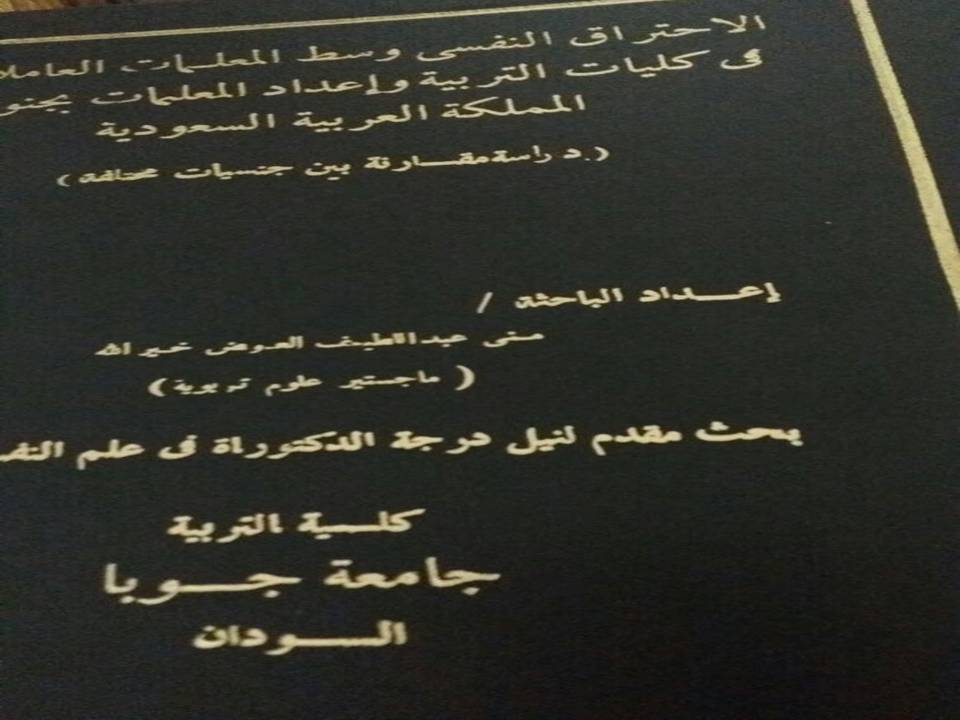 الاحتراق النفسى وسط المعلمات
فى كليات التربية وإعداد المعلمات
المملكة العربية السعودية
(دراسة مقارنة بين جنسيات مختلفة)
إعداد الباحثة /
منى عبداللطيف العوض خيرالله
(ماجستير علوم تربوية)
بحث مقدم لنيل درجة الدكتوراة فى علم
كلية التربية
جامعة جوبا
السودان